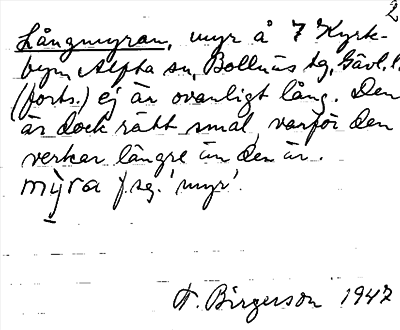 2
Långmyran, myr å 7 Kyrk-
byn, Alfta sn, Bollnäs tg, Gävl. l.
(forts.) ej är ovanligt lång. Den
är dock rätt smal, varför den
verkar längre än den är.
mỳra f sg. 'myr'.
F. Birgerson 1947